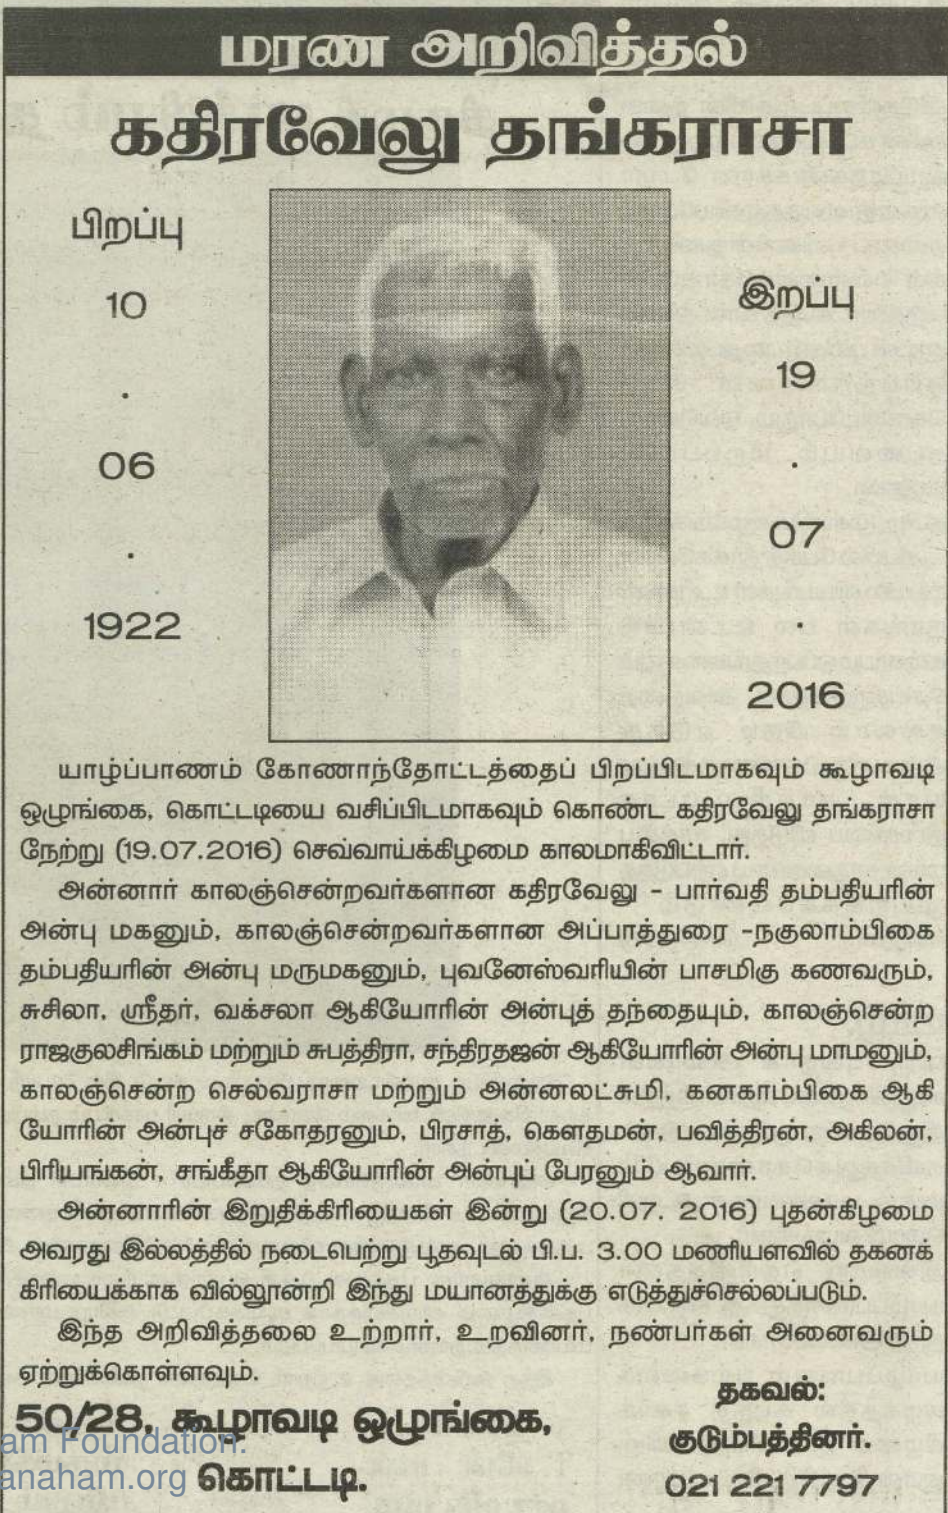 மரண அறிவித்தல்
கதிரவேலு தங்கராசா
பிறப்பு
10
.
06
.
1922
இறப்பு
19
.
07
.
2016
யாழ்ப்பாணம் கோணாந்தோட்டத்தைப் பிறப்பிடமாகவும் கூழாவடி
ஒழுங்கை, கொட்டடியை வசிப்பிடமாகவும் கொண்ட கதிரவேலு தங்கராசா
நேற்று (19.07.2016) செவ்வாய்க்கிழமை காலமாகிவிட்டார்.
அன்னார் காலஞ்சென்றவர்களான கதிரவேலு - பார்வதி தம்பதியரின்
அன்பு மகனும், காலஞ்சென்றவர்களான அப்பாத்துரை -நகுலாம்பிகை
தம்பதியரின் அன்பு மருமகனும், புவனேஸ்வரியின் பாசமிகு கணவரும்,
சுசிலா, ஸ்ரீதர், வக்சலா ஆகியோரின் அன்புத் தந்தையும், காலஞ்சென்ற
ராஜகுலசிங்கம் மற்றும் சுபத்திரா, சந்திரதஜன் ஆகியோரின் அன்பு மாமனும்,
காலஞ்சென்ற செல்வராசா மற்றும் அன்னலட்சுமி, கனகாம்பிகை ஆகி
யோரின் அன்புச் சகோதரனும், பிரசாத், கௌதமன், பவித்திரன், அகிலன்,
பிரியங்கன், சங்கீதா ஆகியோரின் அன்புப் பேரனும் ஆவார்.
அன்னாரின் இறுதிக்கிரியைகள் இன்று (20.07. 2016) புதன்கிழமை
அவரது இல்லத்தில் நடைபெற்று பூதவுடல் பி.ப. 3.00 மணியளவில் தகனக்
கிரியைக்காக வில்லூன்றி இந்து மயானத்துக்கு எடுத்துச்செல்லப்படும்.
இந்த அறிவித்தலை உற்றார், உறவினர், நண்பர்கள் அனைவரும்
ஏற்றுக்கொள்ளவும்.
50/28, கூழாவடி ஒழுங்கை,
கொட்டடி.
தகவல்:
குடும்பத்தினர்.
021 221 7797
am Foundation.
anaham.org